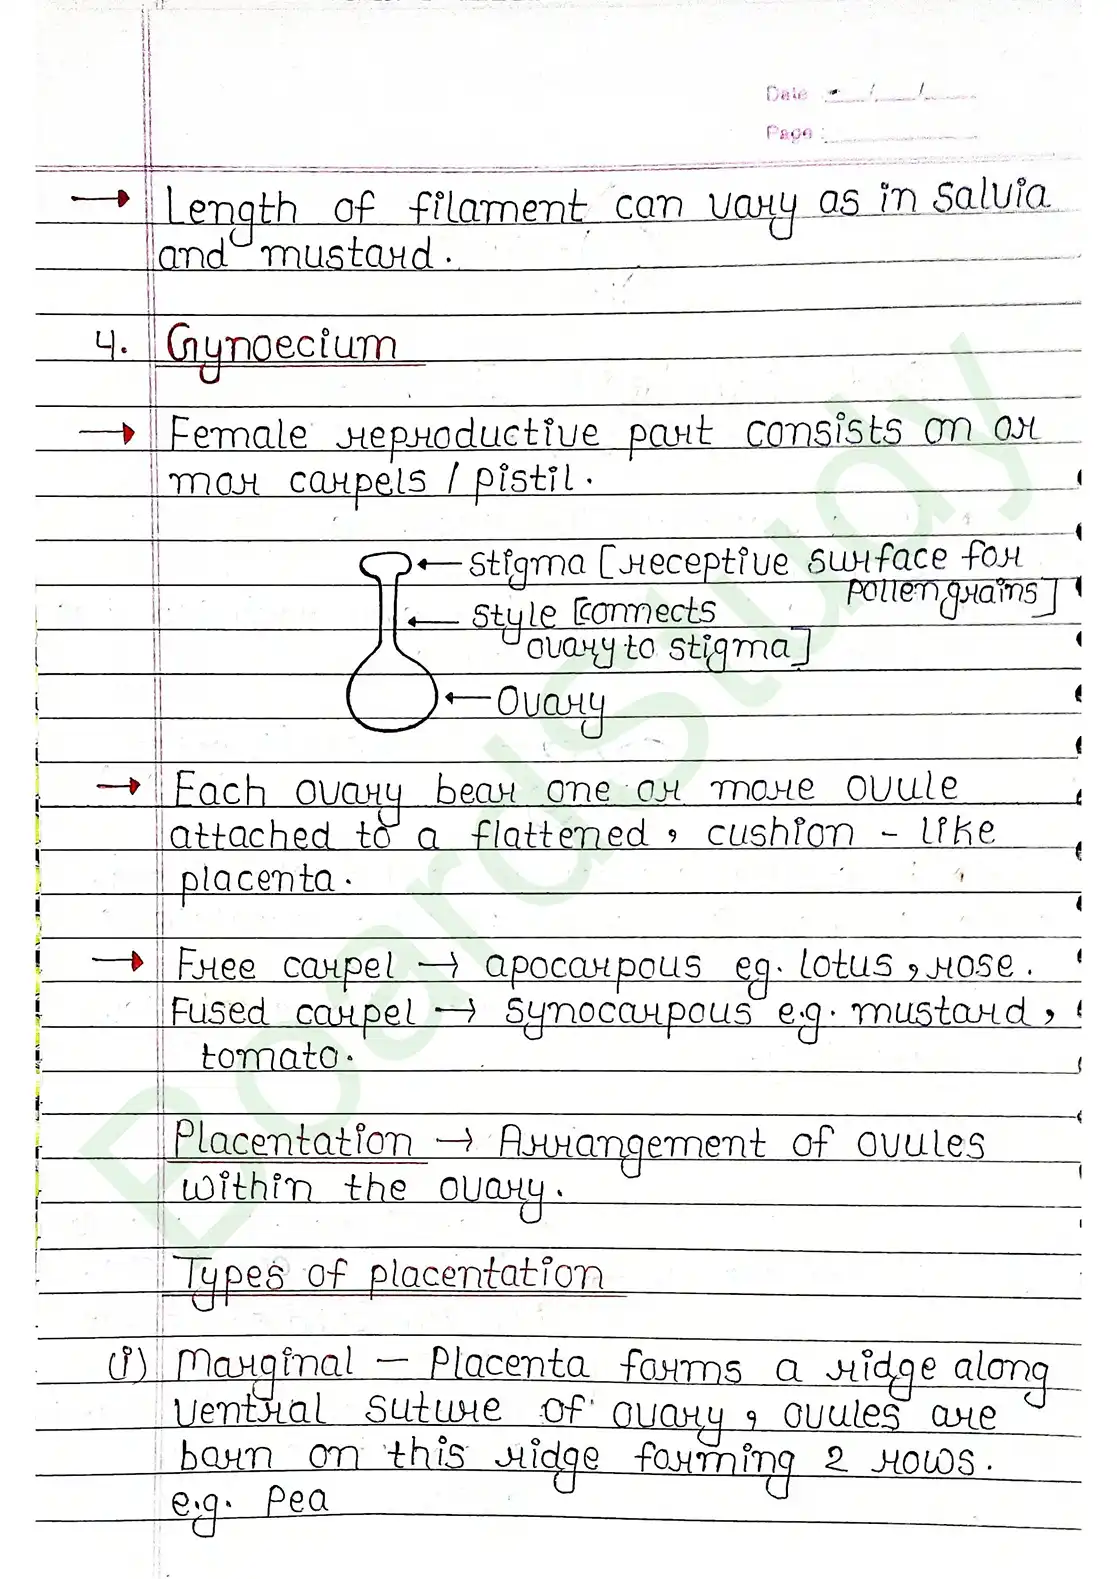 Date / /
Page :
→ Length of filament can vary as in Salvia
and mustard.
4. Gynoecium
→ Female reproductive part consists on or
mor carpels / pistil.
← Stigma [receptive surface for
pollen grains]
← Style [connects
ovary to stigma]
← Ovary
→ Each ovary bear one or more ovule
attached to a flattened, cushion - like
placenta.
→ Free carpel → apocarpous eg. lotus, rose.
Fused carpel → synocarpous e.g. mustard,
tomato.
Placentation → Arrangement of ovules
within the ovary.
Types of placentation
(i) Marginal — Placenta forms a ridge along
ventral suture of ovary, ovules are
born on this ridge forming 2 rows.
e.g. Pea
BoardStudy